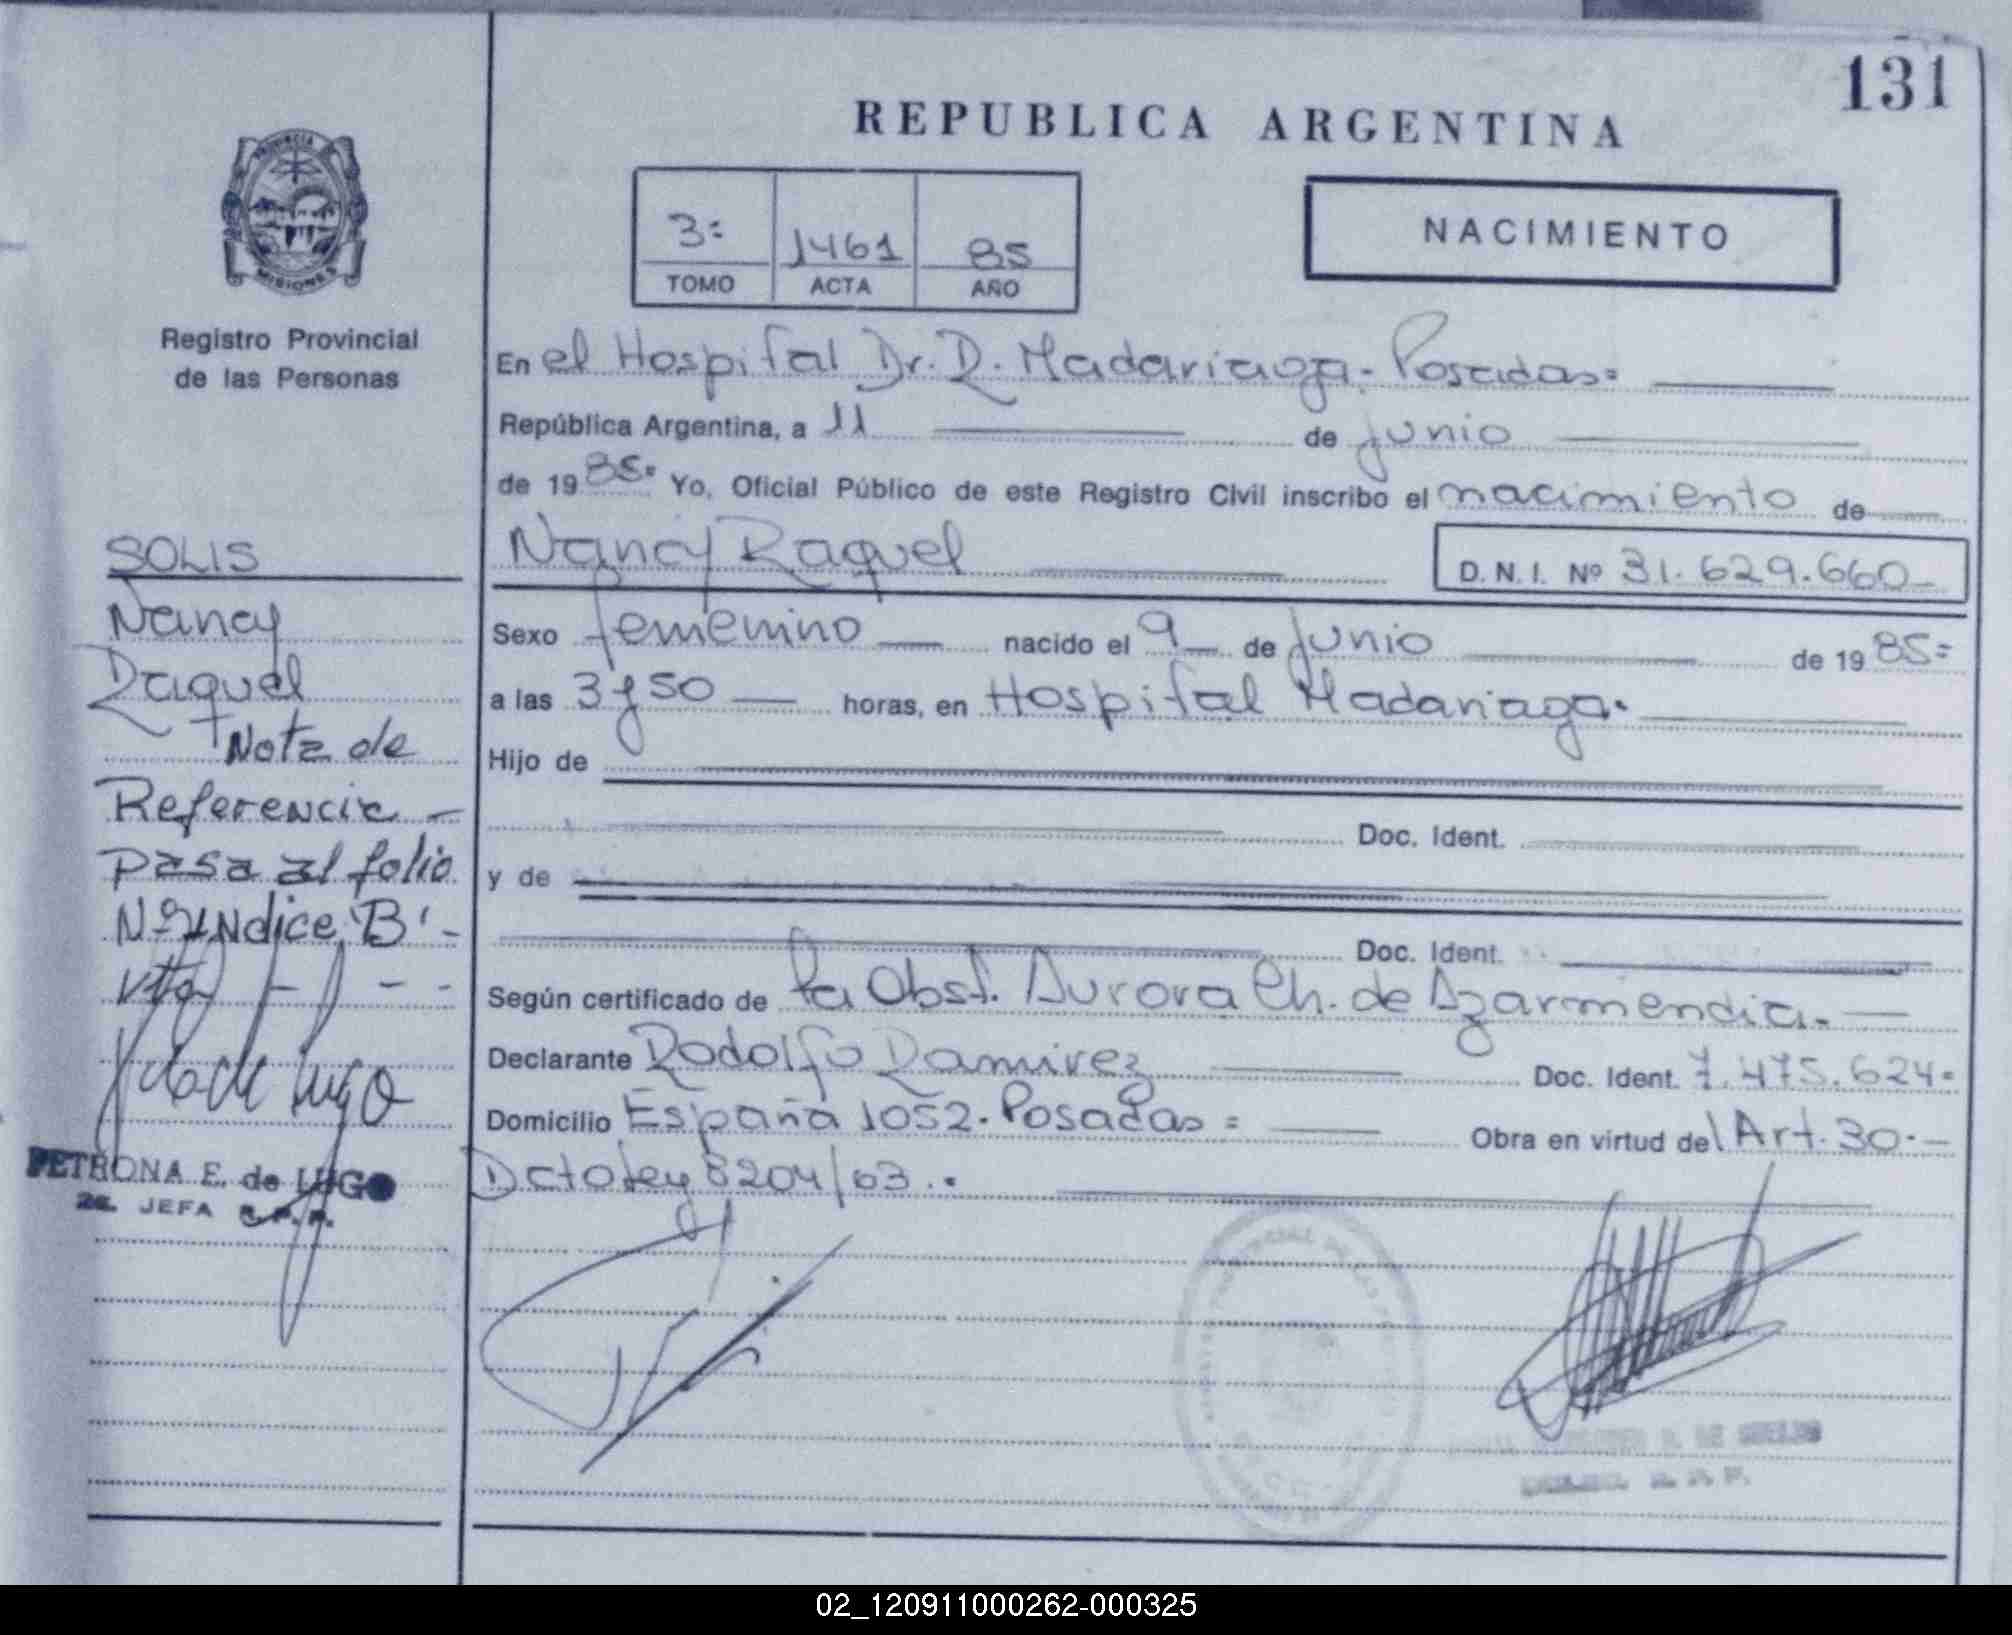 131
REPUBLICA ARGENTINA
PROVINCIA
MISIONES
Registro Provincial
de las Personas
3=
1461
85
TOMO
ACTA
AÑO
NACIMIENTO
En el Hospital Dr. R. Madariaga - Posadas=
República Argentina, a 11 de junio
de 1985= Yo, Oficial Público de este Registro Civil inscribo el nacimiento de
Nancy Raquel
D.N.I. Nº 31.629.660
Sexo femenino nacido el 9 de junio de 1985=
a las 3 y 50 horas, en Hospital Madariaga.
Hijo de
Doc. Ident.
y de
Doc. Ident.
Según certificado de la Obst. Aurora Ch. de Azarmendia.
Declarante Rodolfo Ramirez Doc. Ident. 7.475.624=
Domicilio España 1052. Posadas = Obra en virtud del Art. 30.
Dcto ley 8204/63..
SOLIS
Nancy
Raquel
Nota de
Referencia -
pasa al folio
Nº Indice 'B' -
PETRONA E. de LUGO
JEFA R.P.P.
02_120911000262-000325